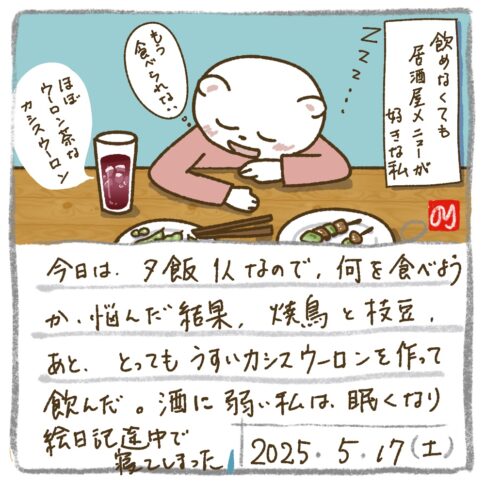 飲めなくても
居酒屋メニューが
好きな私
もう
食べられない
ZZZZ
ほぼ
ウーロン茶な
カシスウーロン
今日は、夕飯1人なので、何を食べよう
か、悩んだ結果、焼鳥と枝豆、
あと、とってもうすいカシスウーロンを作って
飲んだ。酒に弱い私は、眠くなり
絵日記途中で
寝てしまった
2025.5.17(土)